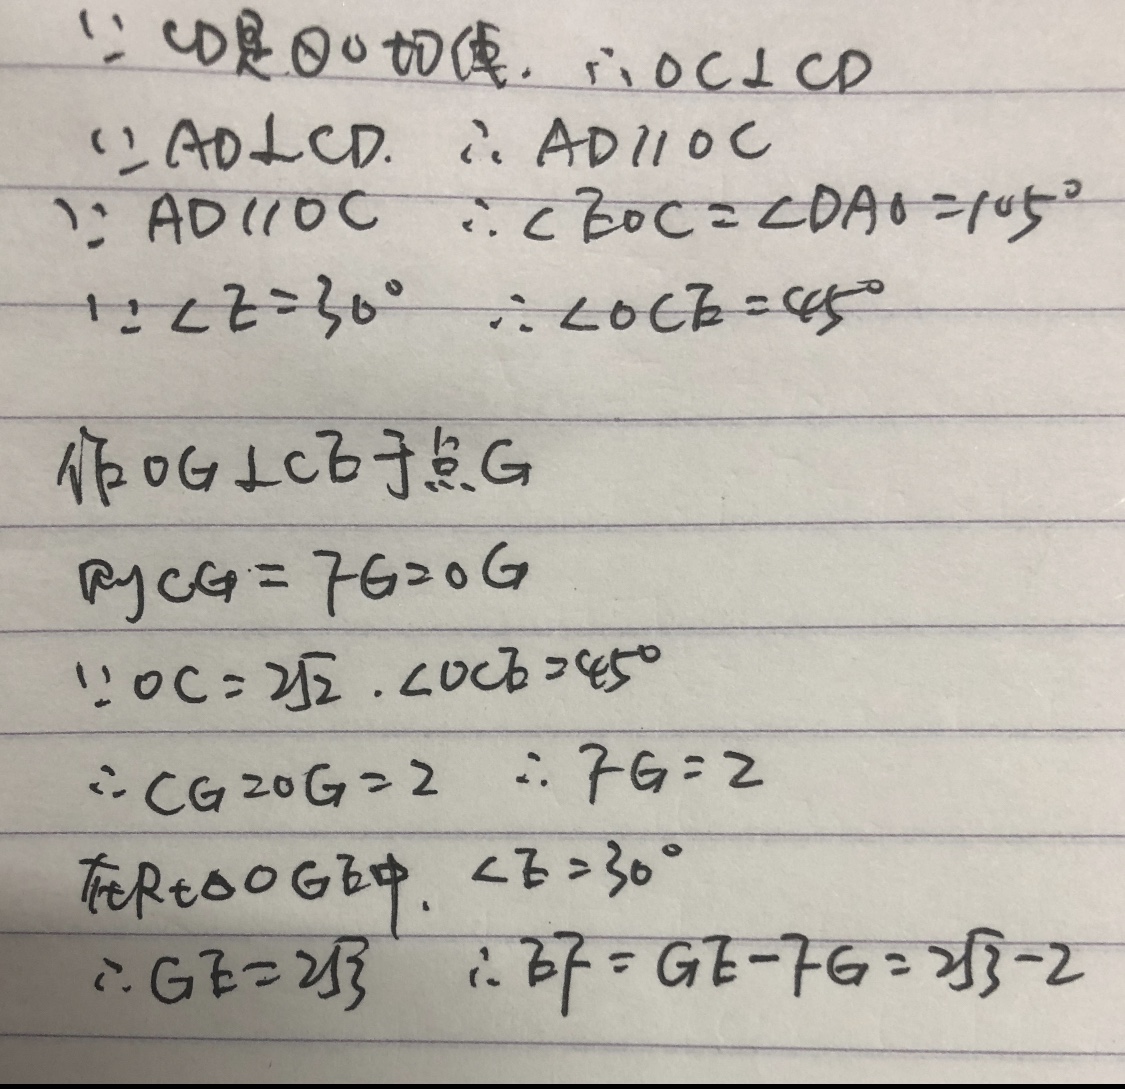 ∵ CD是⊙O切线. ∴OC⊥CD
∵AD⊥CD. ∴ AD//OC
∵ AD//OC ∴∠EOC=∠DAO=105°
∵∠E=30° ∴∠OCE=45°
作OG⊥CE于点G
则CG=FG=OG
∵OC=2√2.∠OCE=45°
∴CG=OG=2 ∴FG=2
在Rt△OGE中.∠E=30°
∴GE=2√3 ∴EF=GE-FG=2√3-2